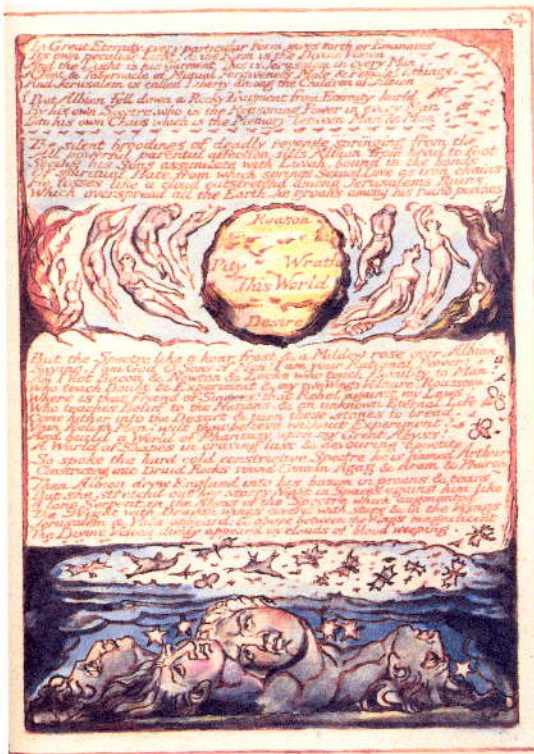 54
In Great Eternity, every particular Form gives forth or Emanates
Its own peculiar Light, & the Form is the Divine Vision
And the Light is his Garment This is Jerusalem in every Man
A Tent & Tabernacle of Mutual Forgiveness Male & Female Clothings.
And Jerusalem is called Liberty among the Children of Albion
But Albion fell down a Rocky fragment from Eternity hurld
By his own Spectre, who is the Reasoning Power in every Man
Into his own Chaos which is the Memory between Man & Man
The silent broodings of deadly revenge springing from the
All powerful parental affection, fills Albion from head to foot
Seeing his Sons assimilate with Luvah, bound in the bonds
Of spiritual Hate, from which springs Sexual Love as iron chains
He tosses like a cloud outstretchd among Jerusalems Ruins
Which overspread all the Earth, he groans among his ruind porches
Reason
Pity Wrath
This World
Desire
But the Spectre like a hoar frost & a Mildew rose over Albion
Saying, I am God O Sons of Men! I am your Rational Power!
Am I not Bacon & Newton & Locke who teach Humility to Man!
Who teach Doubt & Experiment & my two Wings Voltaire: Rousseau.
Where is that Friend of Sinners! that Rebel against my Laws!
Who teaches Belief to the Nations, & an unknown Eternal Life
Come hither into the Desart & turn these stones to bread.
Vain foolish Man! wilt thou believe without Experiment?
And build a World of Phantasy upon my Great Abyss!
A World of Shapes in craving lust & devouring appetite
So spoke the hard cold constrictive Spectre he is named Arthur
Constricting into Druid Rocks round Canaan Agag & Aram & Pharoh
Then Albion drew England into his bosom in groans & tears
But she stretchd out her starry Night in Spaces against him. like
A long Serpent, in the Abyss of the Spectre which augmented
The Night with Dragon wings coverd with stars & in the Wings
Jerusalem & Vala appeard: & above between the Wings magnificent
The Divine Vision dimly appeard in clouds of blood weeping.